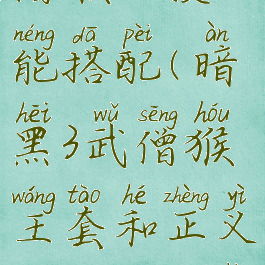 néng dā pèi àn
能搭配(暗
hēi wǔ sēng hóu
黑3武僧猴
wáng tào hé zhèng yì
王套和正义